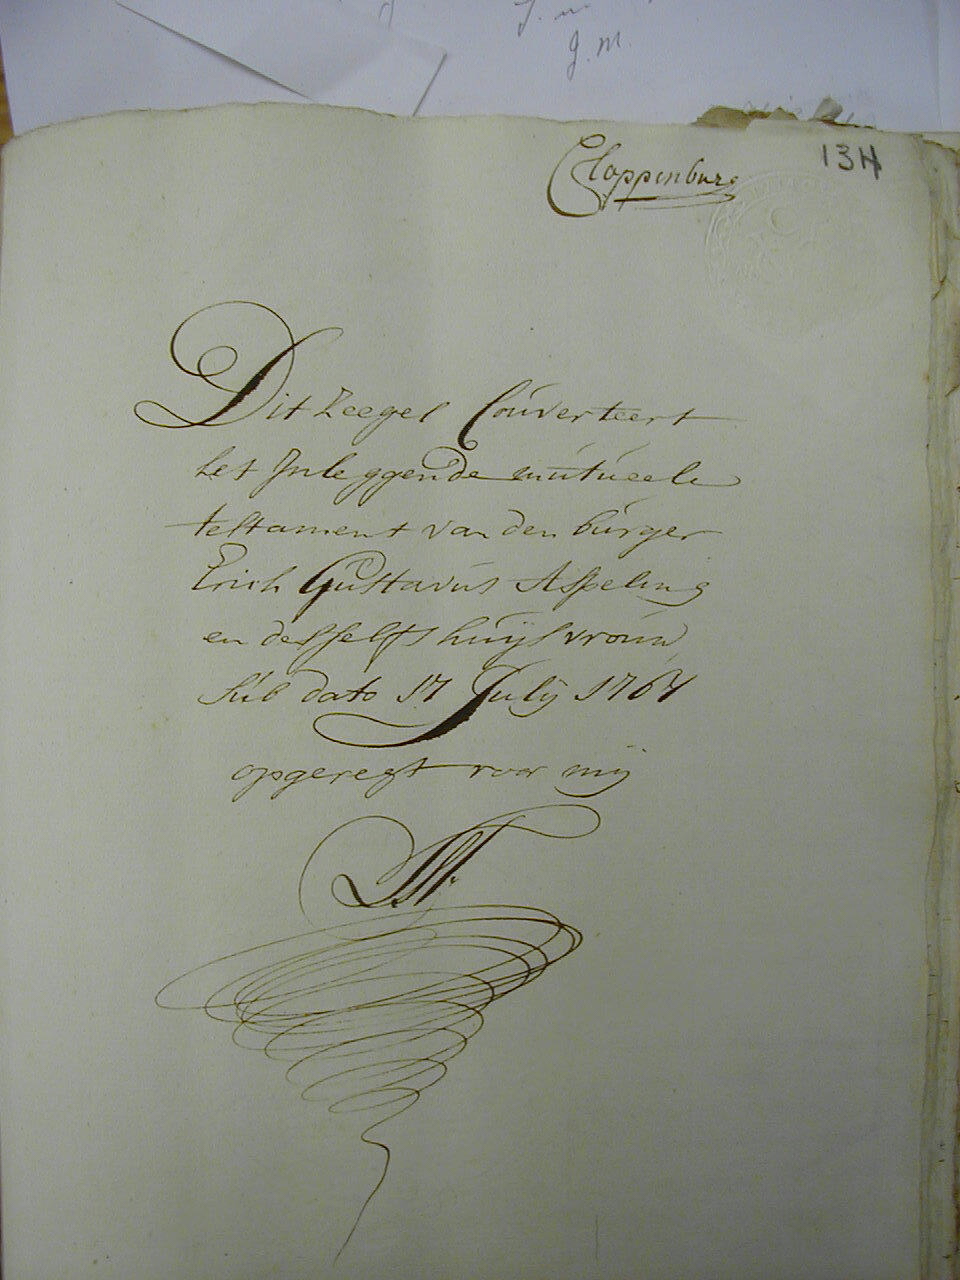 J. m
J. M.
Cloppenburg
134
Dit Zeegel Couverteert
het Inleggende mutueele
testament van den burger
Erich Gustavus Aspeling
en desselfs huijsvrouw
sub dato 17 Julij 1764
opgeregt voor mij